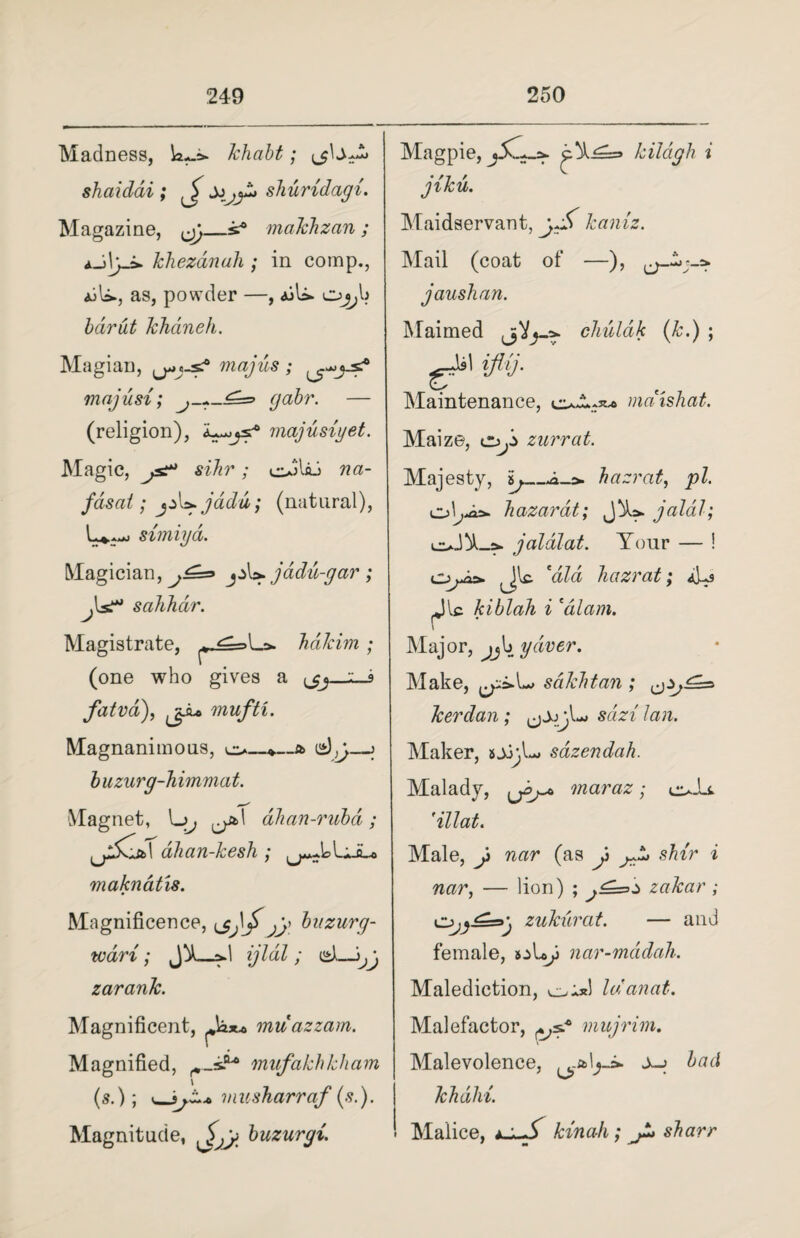 249
Madness, خبط khabt ; شیدای
shaiddi ; شوریده گی shúrídagí.
Magazine, مخزن makhzan ;
خزانه khezánah ; in comp.,
خانه, as, powder —, باروت خانه
bárút kháneh.
Magian, مجوس majús ; مجوسی
majúsí ; گبر gabr. —
(religion), مجوسیة majúsiyet.
Magic, سحر sihr ; نفاثت na-
fásat ; جادو jádú ; (natural),
سیمیا símiyá.
Magician, جادو گر jádú-gar ;
سحار sahhár.
Magistrate, حاکم hákim ;
(one who gives a فتوی
fatvá), مفتی muftí.
Magnanimous, بزرگ همت
buzurg-himmat.
Magnet, آهن ربا áhan-rubá ;
آهنکش áhan-kesh ; مقناطیس
maknátís.
Magnificence, بزرگواری buzurg-
wárí ; اجلال ijlál ; زرنك
zarank.
Magnificent, معظم mu'azzam.
Magnified, مفخم mufakhkham
(s.) ; مشرف musharraf (s.).
Magnitude, بزرگی buzurgí.
250
Magpie, کلاغ جیکو kilágh i
jíkú.
Maidservant, کنیز kaníz.
Mail (coat of —), جوشن
jaushan.
Maimed چولاق chúlák (k.) ;
افلیج iflíj.
Maintenance, معیشت ma'ishat.
Maize, ذرت zurrat.
Majesty, حضرة hazrat, pl.
حضرات hazarát ; جلال jalál ;
جلالت jalálat. Your — !
عال حضرت 'álá hazrat ; قبله
عالم kiblah i 'álam.
Major, یاور yáver.
Make, ساختن sákhtan ; کردن
kerdan ; سازیدن sází lan.
Maker, سازنده sázendah.
Malady, مرض maraz ; علت
'illat.
Male, نر nar (as شیر نر shír i
nar, — lion) ; ذکر zakar ;
زکورت zukúrat. — and
female, نرماده nar-mádah.
Malediction, لعنت la'anat.
Malefactor, مجرم mujrim.
Malevolence, بد خواهی bad
kháhí.
Malice, کینه kínah ; شر sharr